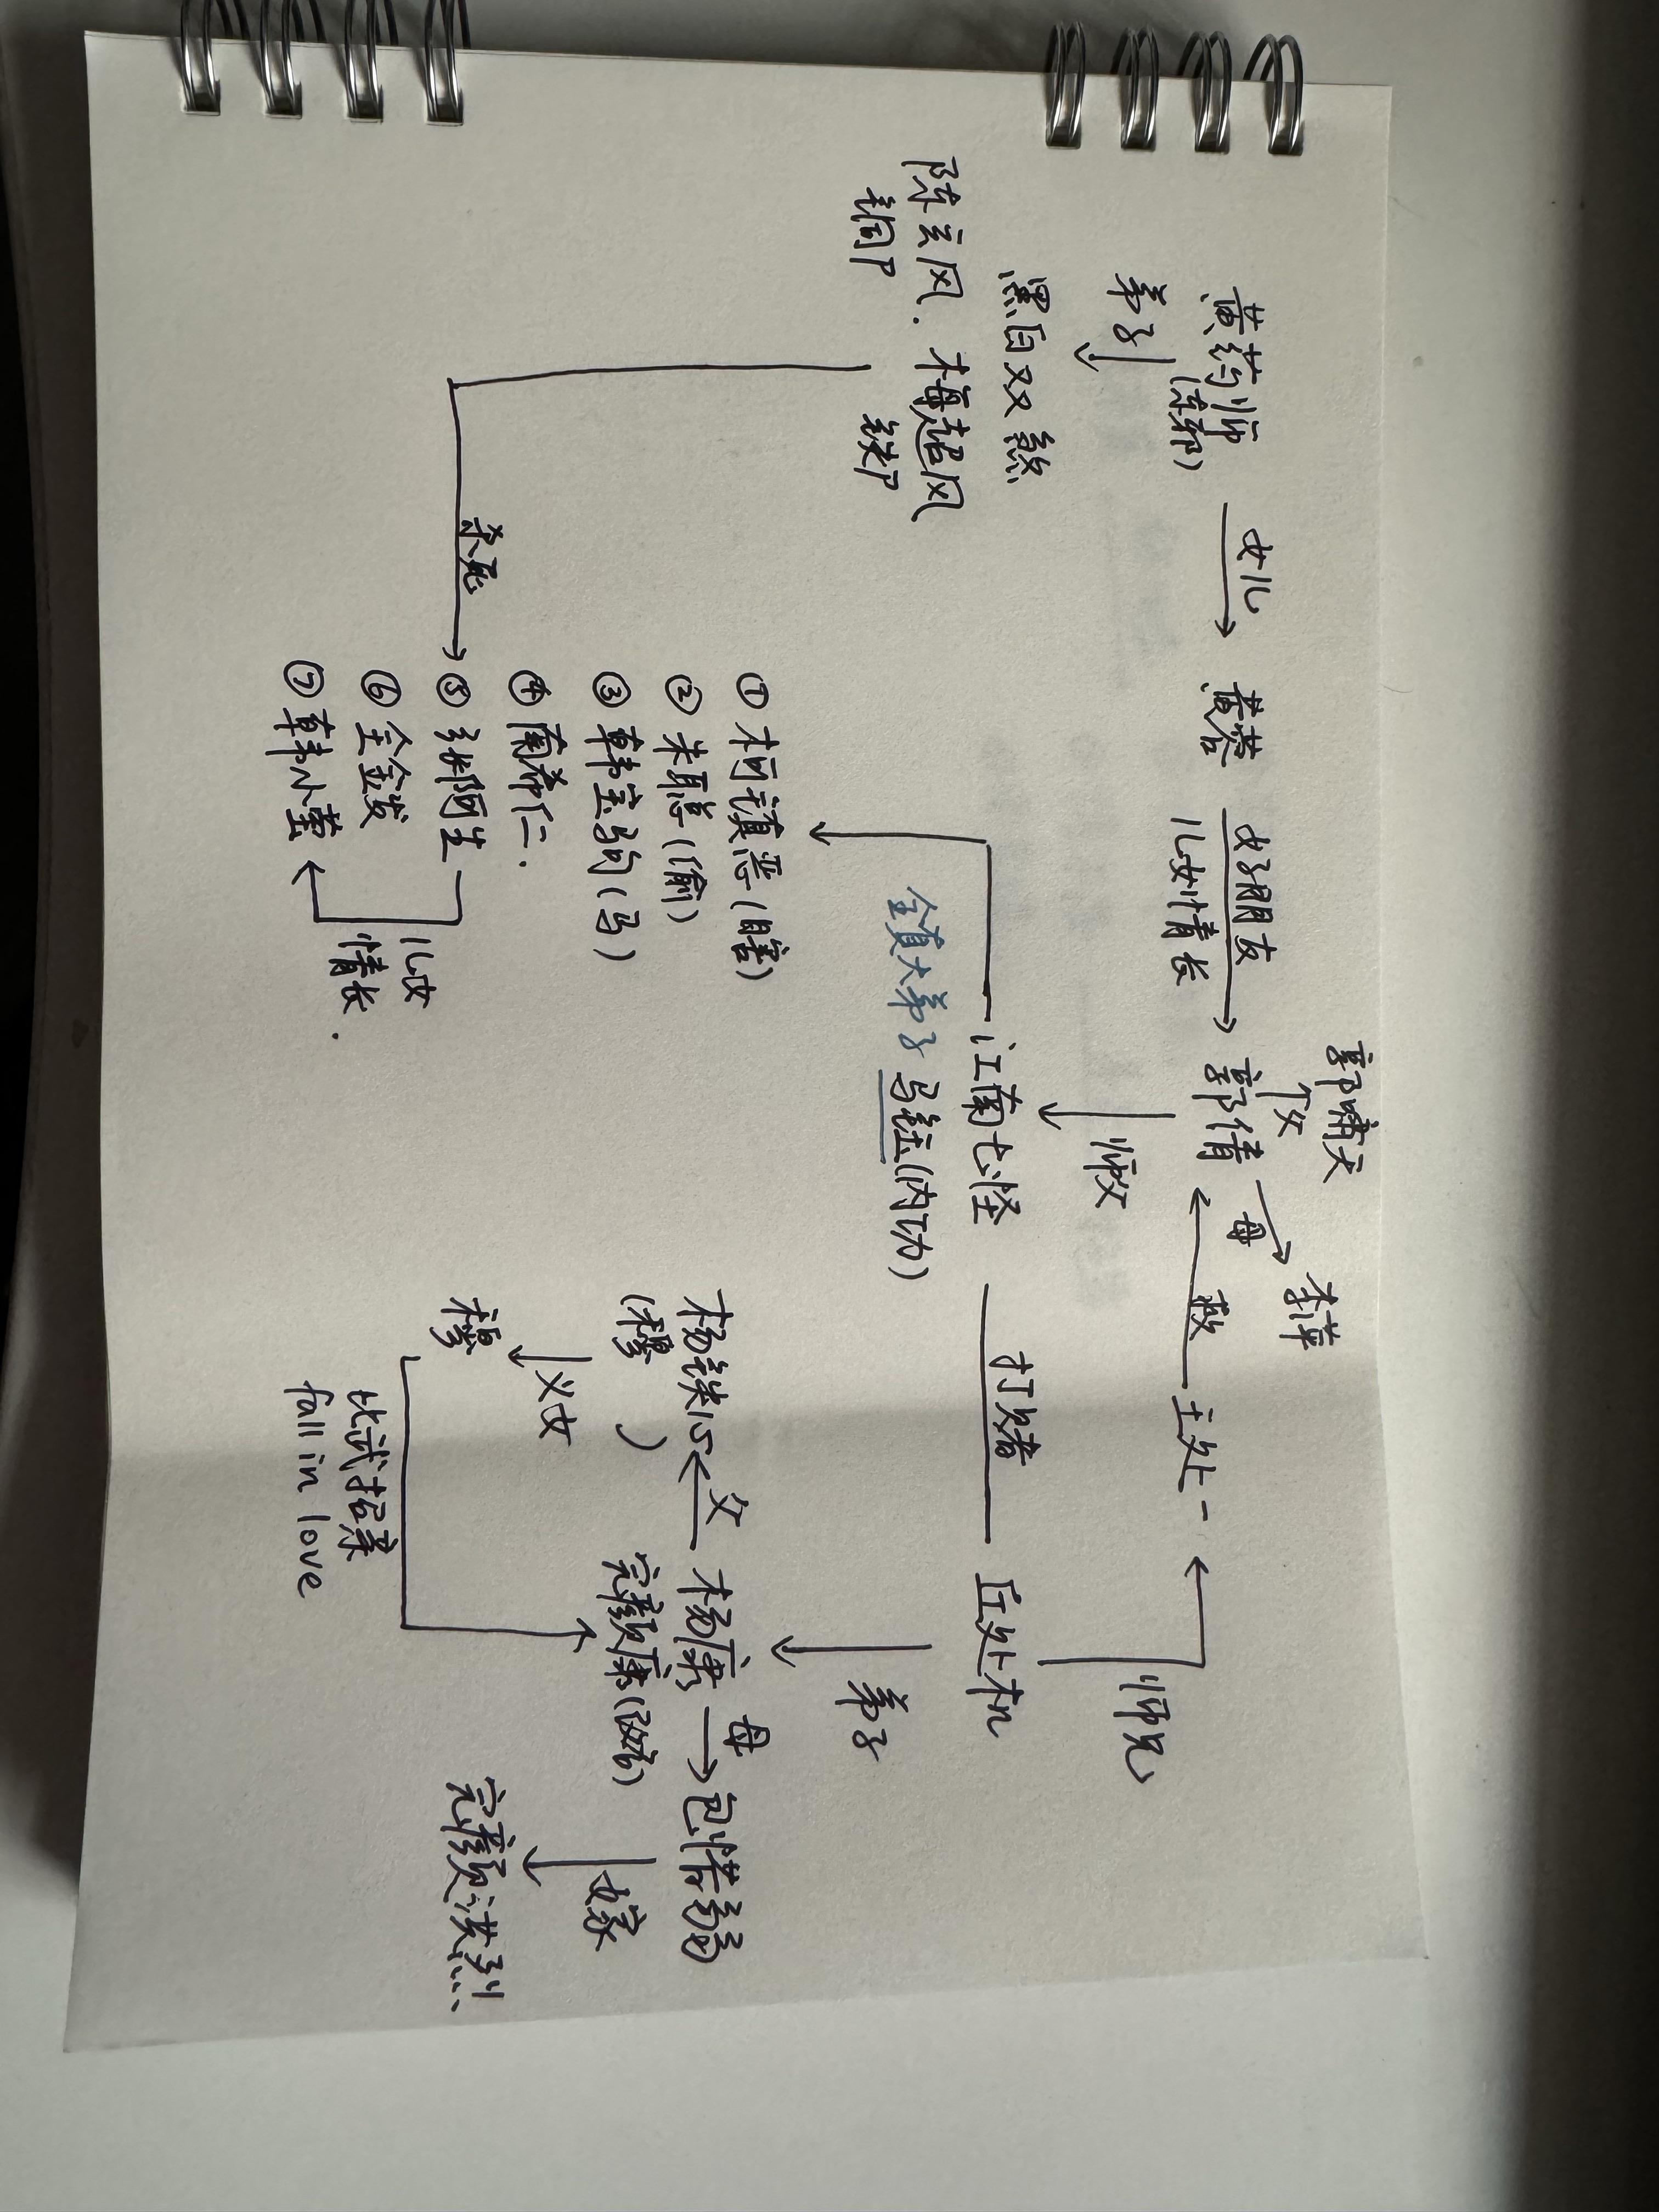 郭啸天
父
李萍
母
黄药师
(东邪)
女儿
黄蓉
好朋友
儿女情长
郭靖
救
王处一
弟子
师父
师兄
黑白双煞
陈玄风.梅超风
铜尸
铁尸
江南七怪
打赌
丘处机
全真大弟子
马钰(内功)
弟子
①柯镇恶(瞎)
②朱聪(偷)
③韩宝驹(马)
④南希仁.
⑤张阿生
⑥全金发
⑦韩小莹
杀死
儿女
情长.
杨铁心
(穆 )
父
杨康
完颜康
母
包惜弱
义女
穆
嫁
完颜洪烈
比试招亲
fall in love